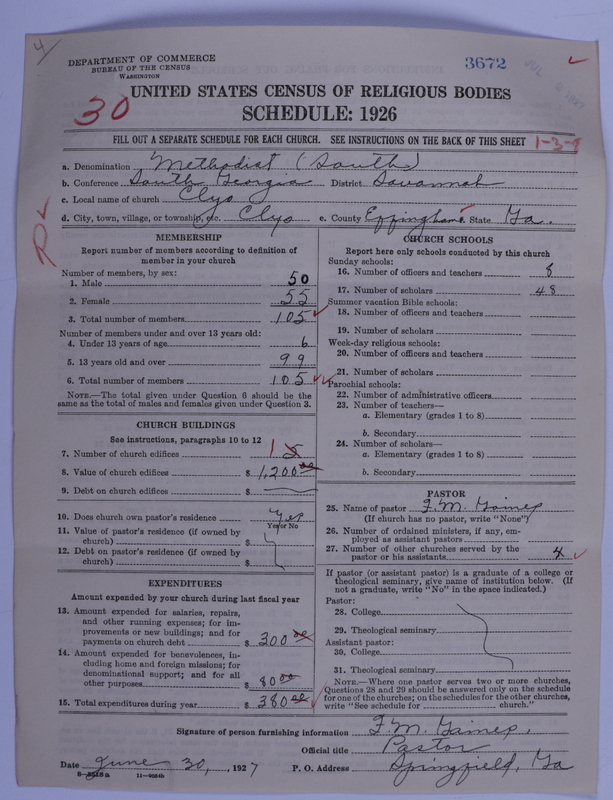 4
DEPARTMENT OF COMMERCE
BUREAU OF THE CENSUS
WASHINGTON
3672
30
UNITED STATES CENSUS OF RELIGIOUS BODIES
SCHEDULE: 1926
FILL OUT A SEPARATE SCHEDULE FOR EACH CHURCH. SEE INSTRUCTIONS ON THE BACK OF THIS SHEET
a. Denomination Methodist (South)
b. Conference South Georgia District Savannah
c. Local name of church Clyo
d. City, town, village, or township, etc. Clyo e. County Effingham State Ga.
MEMBERSHIP
Report number of members according to definition of member in your church
Number of members, by sex:
1. Male 50
2. Female 55
3. Total number of members 105
Number of members under and over 13 years old:
4. Under 13 years of age 6
5. 13 years old and over 99
6. Total number of members 105
NOTE.—The total given under Question 6 should be the same as the total of males and females given under Question 3.
CHURCH BUILDINGS
See instructions, paragraphs 10 to 12
7. Number of church edifices 1 5
8. Value of church edifices $ 1,200 00
9. Debt on church edifices $
10. Does church own pastor's residence Yes
Yes or No
11. Value of pastor's residence (if owned by church) $
12. Debt on pastor's residence (if owned by church) $
EXPENDITURES
Amount expended by your church during last fiscal year
13. Amount expended for salaries, repairs, and other running expenses; for improvements or new buildings; and for payments on church debt $ 300 00
14. Amount expended for benevolences, including home and foreign missions; for denominational support; and for all other purposes $ 80 00
15. Total expenditures during year $ 380 00
CHURCH SCHOOLS
Report here only schools conducted by this church
Sunday schools:
16. Number of officers and teachers 8
17. Number of scholars 48
Summer vacation Bible schools:
18. Number of officers and teachers
19. Number of scholars
Week-day religious schools:
20. Number of officers and teachers
21. Number of scholars
Parochial schools:
22. Number of administrative officers
23. Number of teachers—
a. Elementary (grades 1 to 8)
b. Secondary
24. Number of scholars—
a. Elementary (grades 1 to 8)
b. Secondary
PASTOR
25. Name of pastor F. M. Gaines
(If church has no pastor, write "None")
26. Number of ordained ministers, if any, employed as assistant pastors
27. Number of other churches served by the pastor or his assistants 4
If pastor (or assistant pastor) is a graduate of a college or theological seminary, give name of institution below. (If not a graduate, write "No" in the space indicated.)
Pastor:
28. College
29. Theological seminary
Assistant pastor:
30. College
31. Theological seminary
NOTE.—Where one pastor serves two or more churches, Questions 28 and 29 should be answered only on the schedule for one of the churches; on the schedules for the other churches, write "See schedule for church."
Signature of person furnishing information F. M. Gaines,
Official title Pastor
Date June 30, 1927 P. O. Address Springfield, Ga